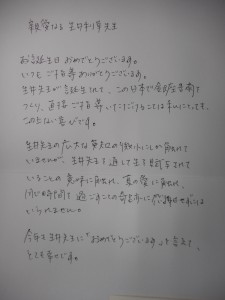 親愛なる 生井利幸先生
お誕生日 おめでとうございます。
いつも ご指導 ありがとうございます。
生井先生が お誕生されて、この日本で 銀座書斎を
つくり、直接 ご指導 いただけることは 私にとって、
この上ない 喜びです。
生井先生の 広大な 英知の 微微にしか 触れて
いませんが、生井先生を 通して 生を
いることの 意味に 触れ、真の愛に 触れ、
同じ時間を 過ごすことの 奇跡に 感謝せずには
いられません。
今年も 生井先生に "おめでとうございます"を 言えて、
とても 幸せです。